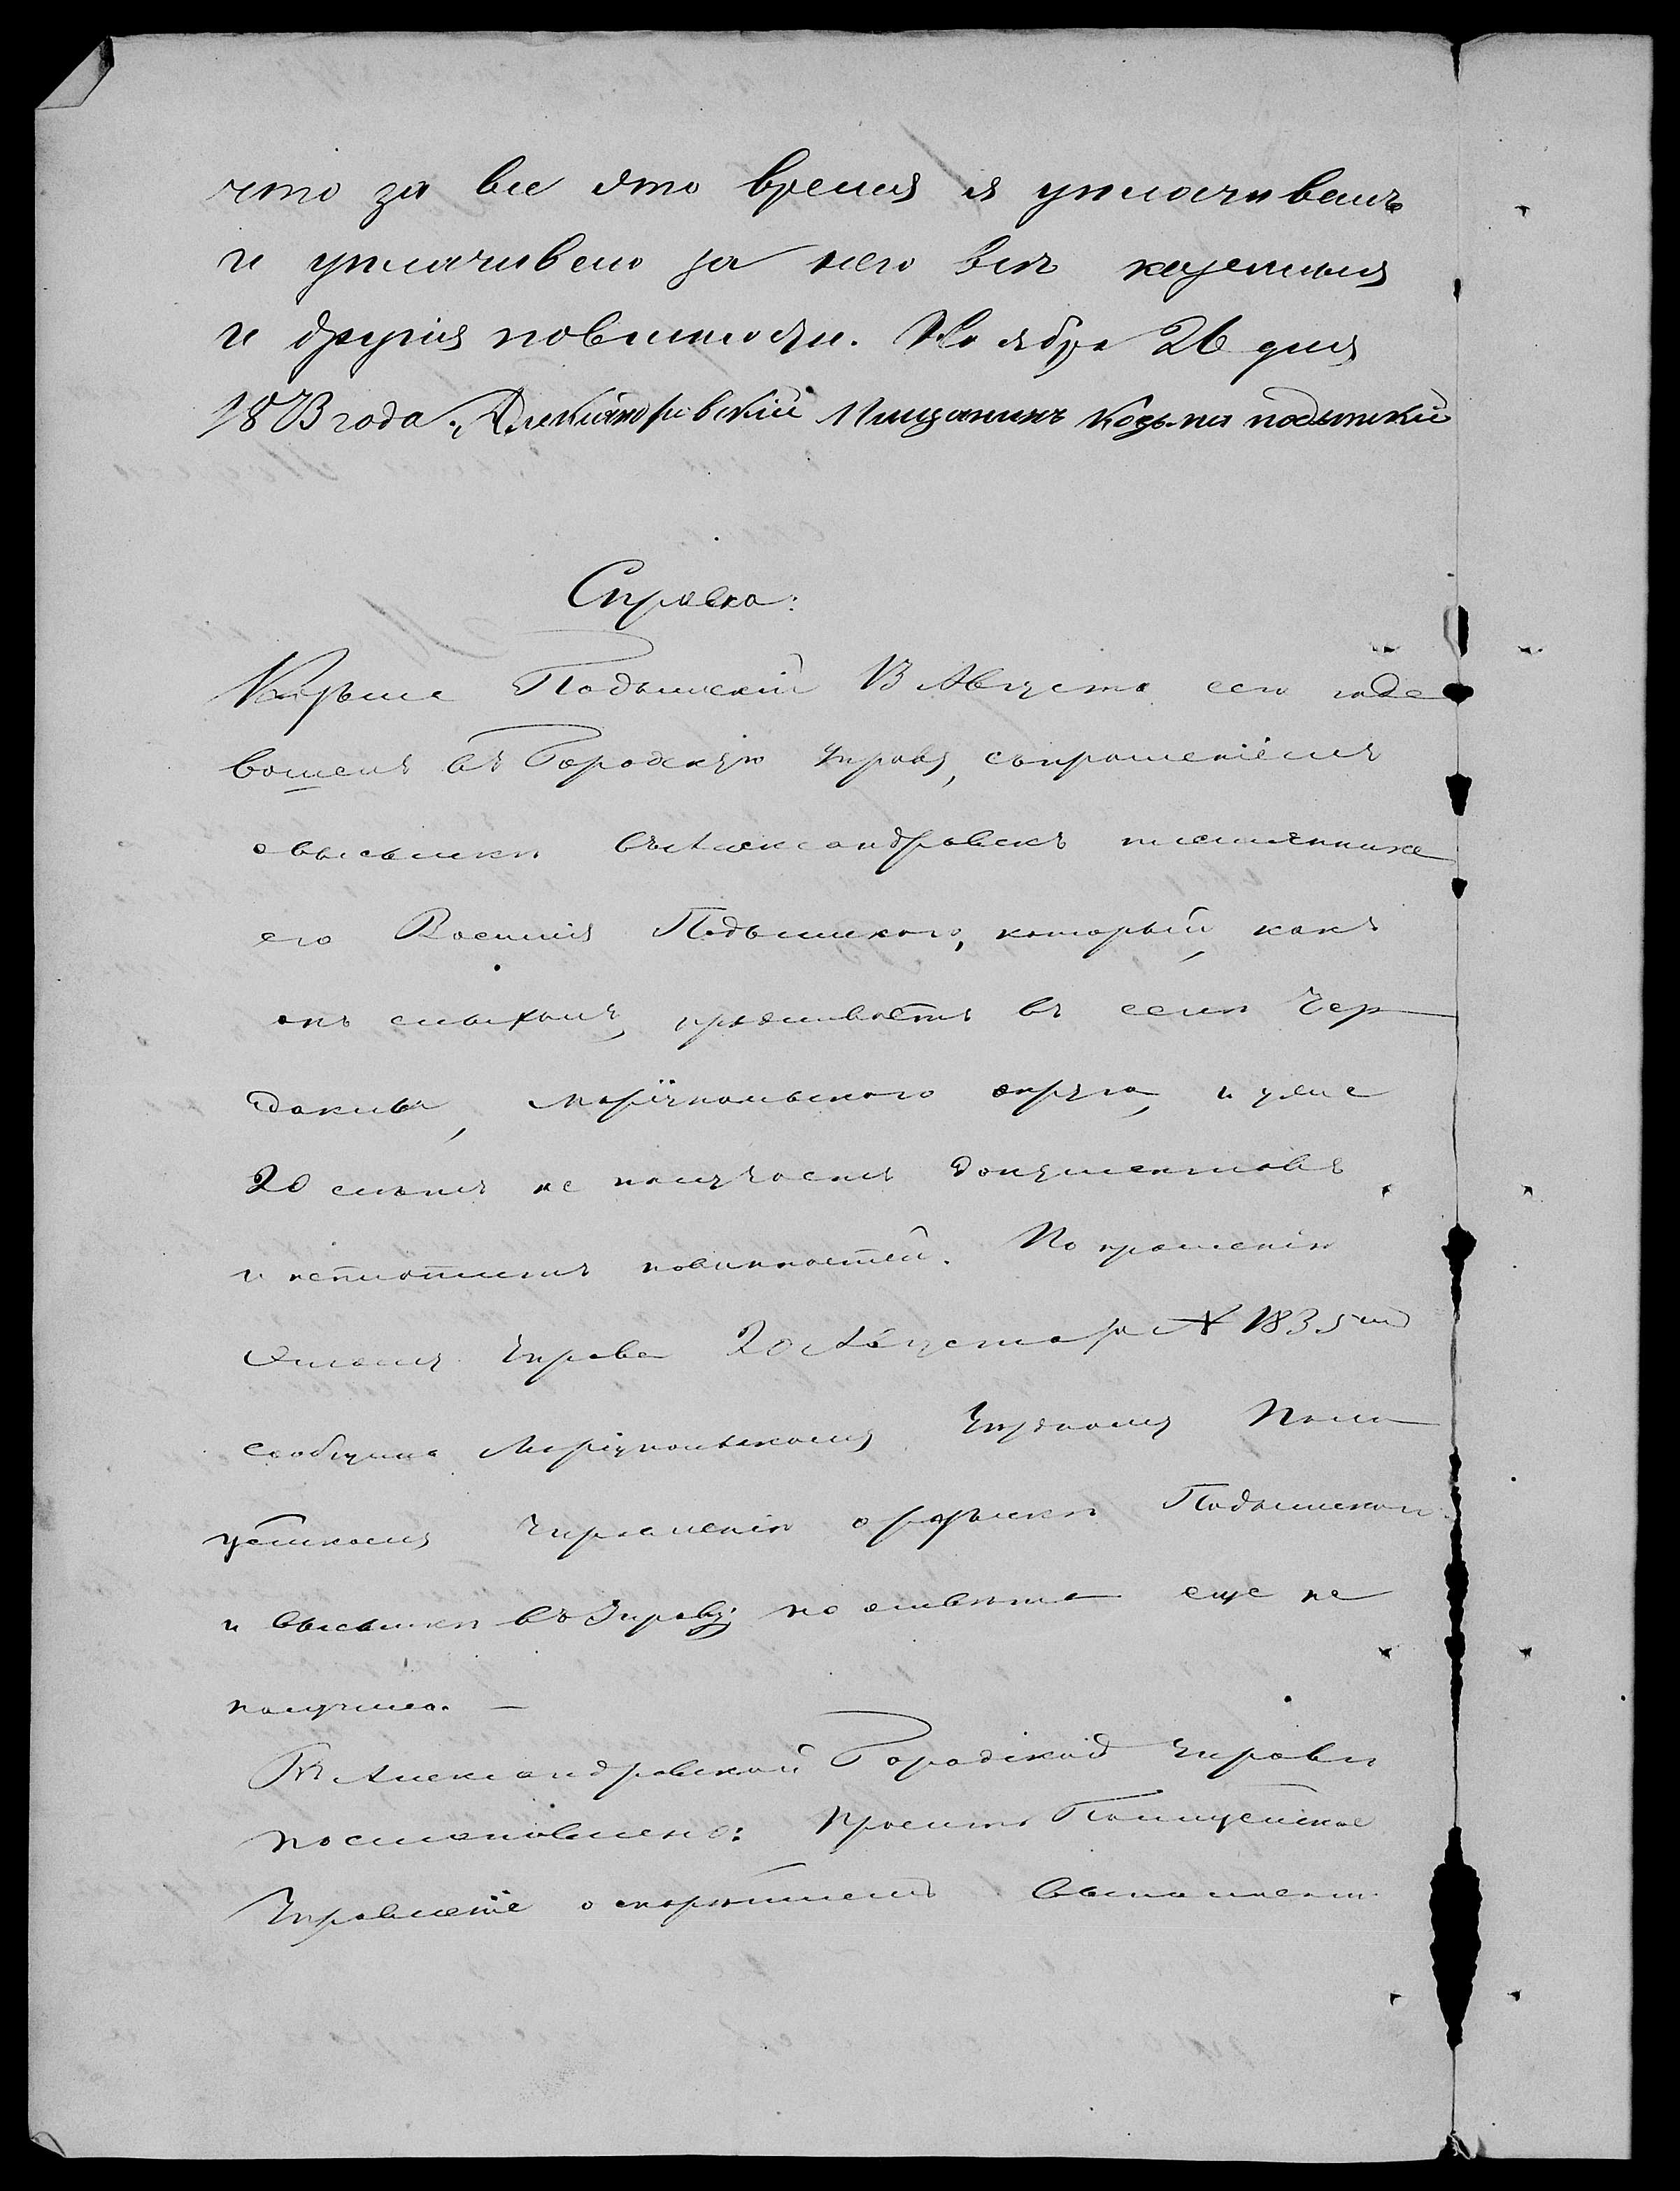 что за все это время я уплачивалъ
и уплачиваю за него всѣ казенныя
и другія повинности. Ноября 26 дня
1873 года Александровскій Мещанинъ Козьма подымскій
Справка:
Козьма Подымскій 13 Августа сего года
вошелъ въ Городскую Управу, съ прошеніемъ
о высылки въ Александровскъ племянника
его Василія Подымскаго, который, какъ
онъ слыхалъ, проживаетъ въ селѣ Чер
даклы, Маріупольскаго округа, и уже
20 лѣтъ не получаетъ документовъ
и неплотитъ повинностей. По прошенію
этому Управа 20 Августа за № 1835 ш
сообщила Маріупольскому Уѣздному Поли
цейскому Управленію о розыскѣ Подымскаго
и высылкѣ въ Управу, но отвѣта еще не
получила. —
Въ Александровской Городской Управѣ
постановлено: просить Полицейское
Управленіе о скорѣйшемъ выполненіи